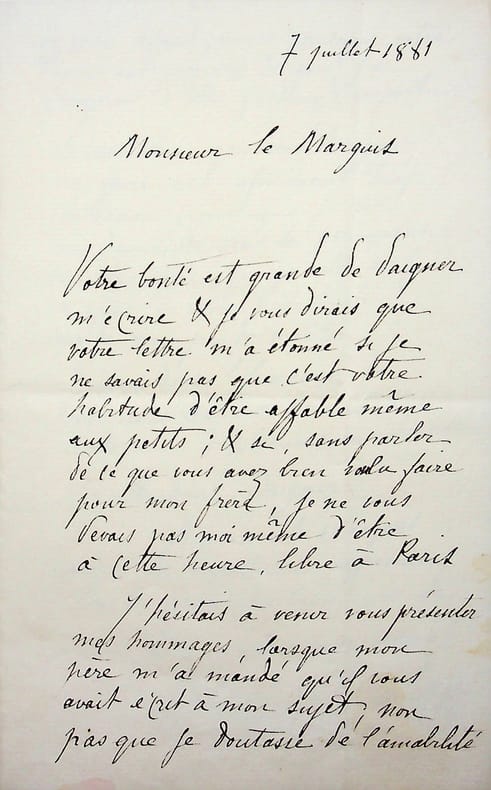 7 juillet 1881
Monsieur le Marquis
Votre bonté est grande de daigner
m'écrire & je vous dirais que
votre lettre m'a étonné si je
ne savais pas que c'est votre
habitude d'être affable même
aux petits ; & si, sans parler
de ce que vous avez bien voulu faire
pour mon frère, je ne vous
devais pas moi même d'être
à cette heure, libre à Paris
J'hésitais à venir vous présenter
mes hommages, lorsque mon
père m'a mandé qu'il vous
avait écrit à mon sujet, non
pas que je doutasse de l'amabilité